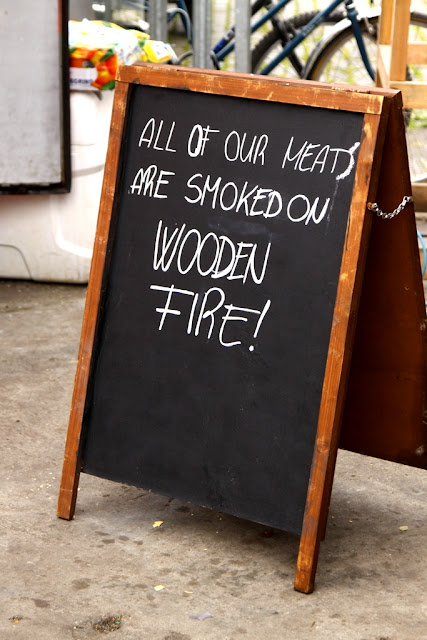 ALL OF OUR MEATS
ARE SMOKED ON
WOODEN
FIRE!